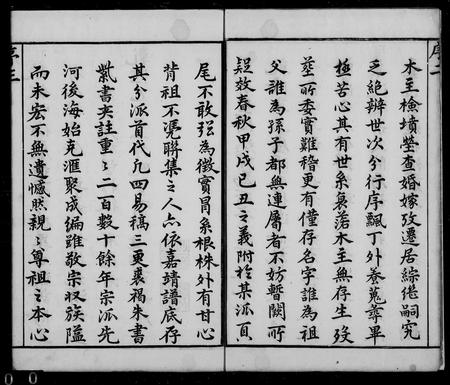 序二
木主檢墳塋查婚嫁攷遷居綜絕嗣究
乏絕辦世次分行序飄丁外養蒐羅畢
極苦心其有世系裒落木主無存生歿
塋所委實難稽更有僅存名字誰為祖
父誰為孫子都無連屬者不妨暫闕所
疑效春秋甲戌己丑之義附於某派頁
尾不敢强為徵實冒系根株外有甘心
背祖不慿聯集之人点依嘉靖譜底存
其分派首代凡四易稿三更裘褐朱書
紫書夾註重重二百數十餘年宗派先
河後海始克滙聚成編雖敬宗収族隘
而未宏不無遺憾然親親尊祖之本心
序三
0 0